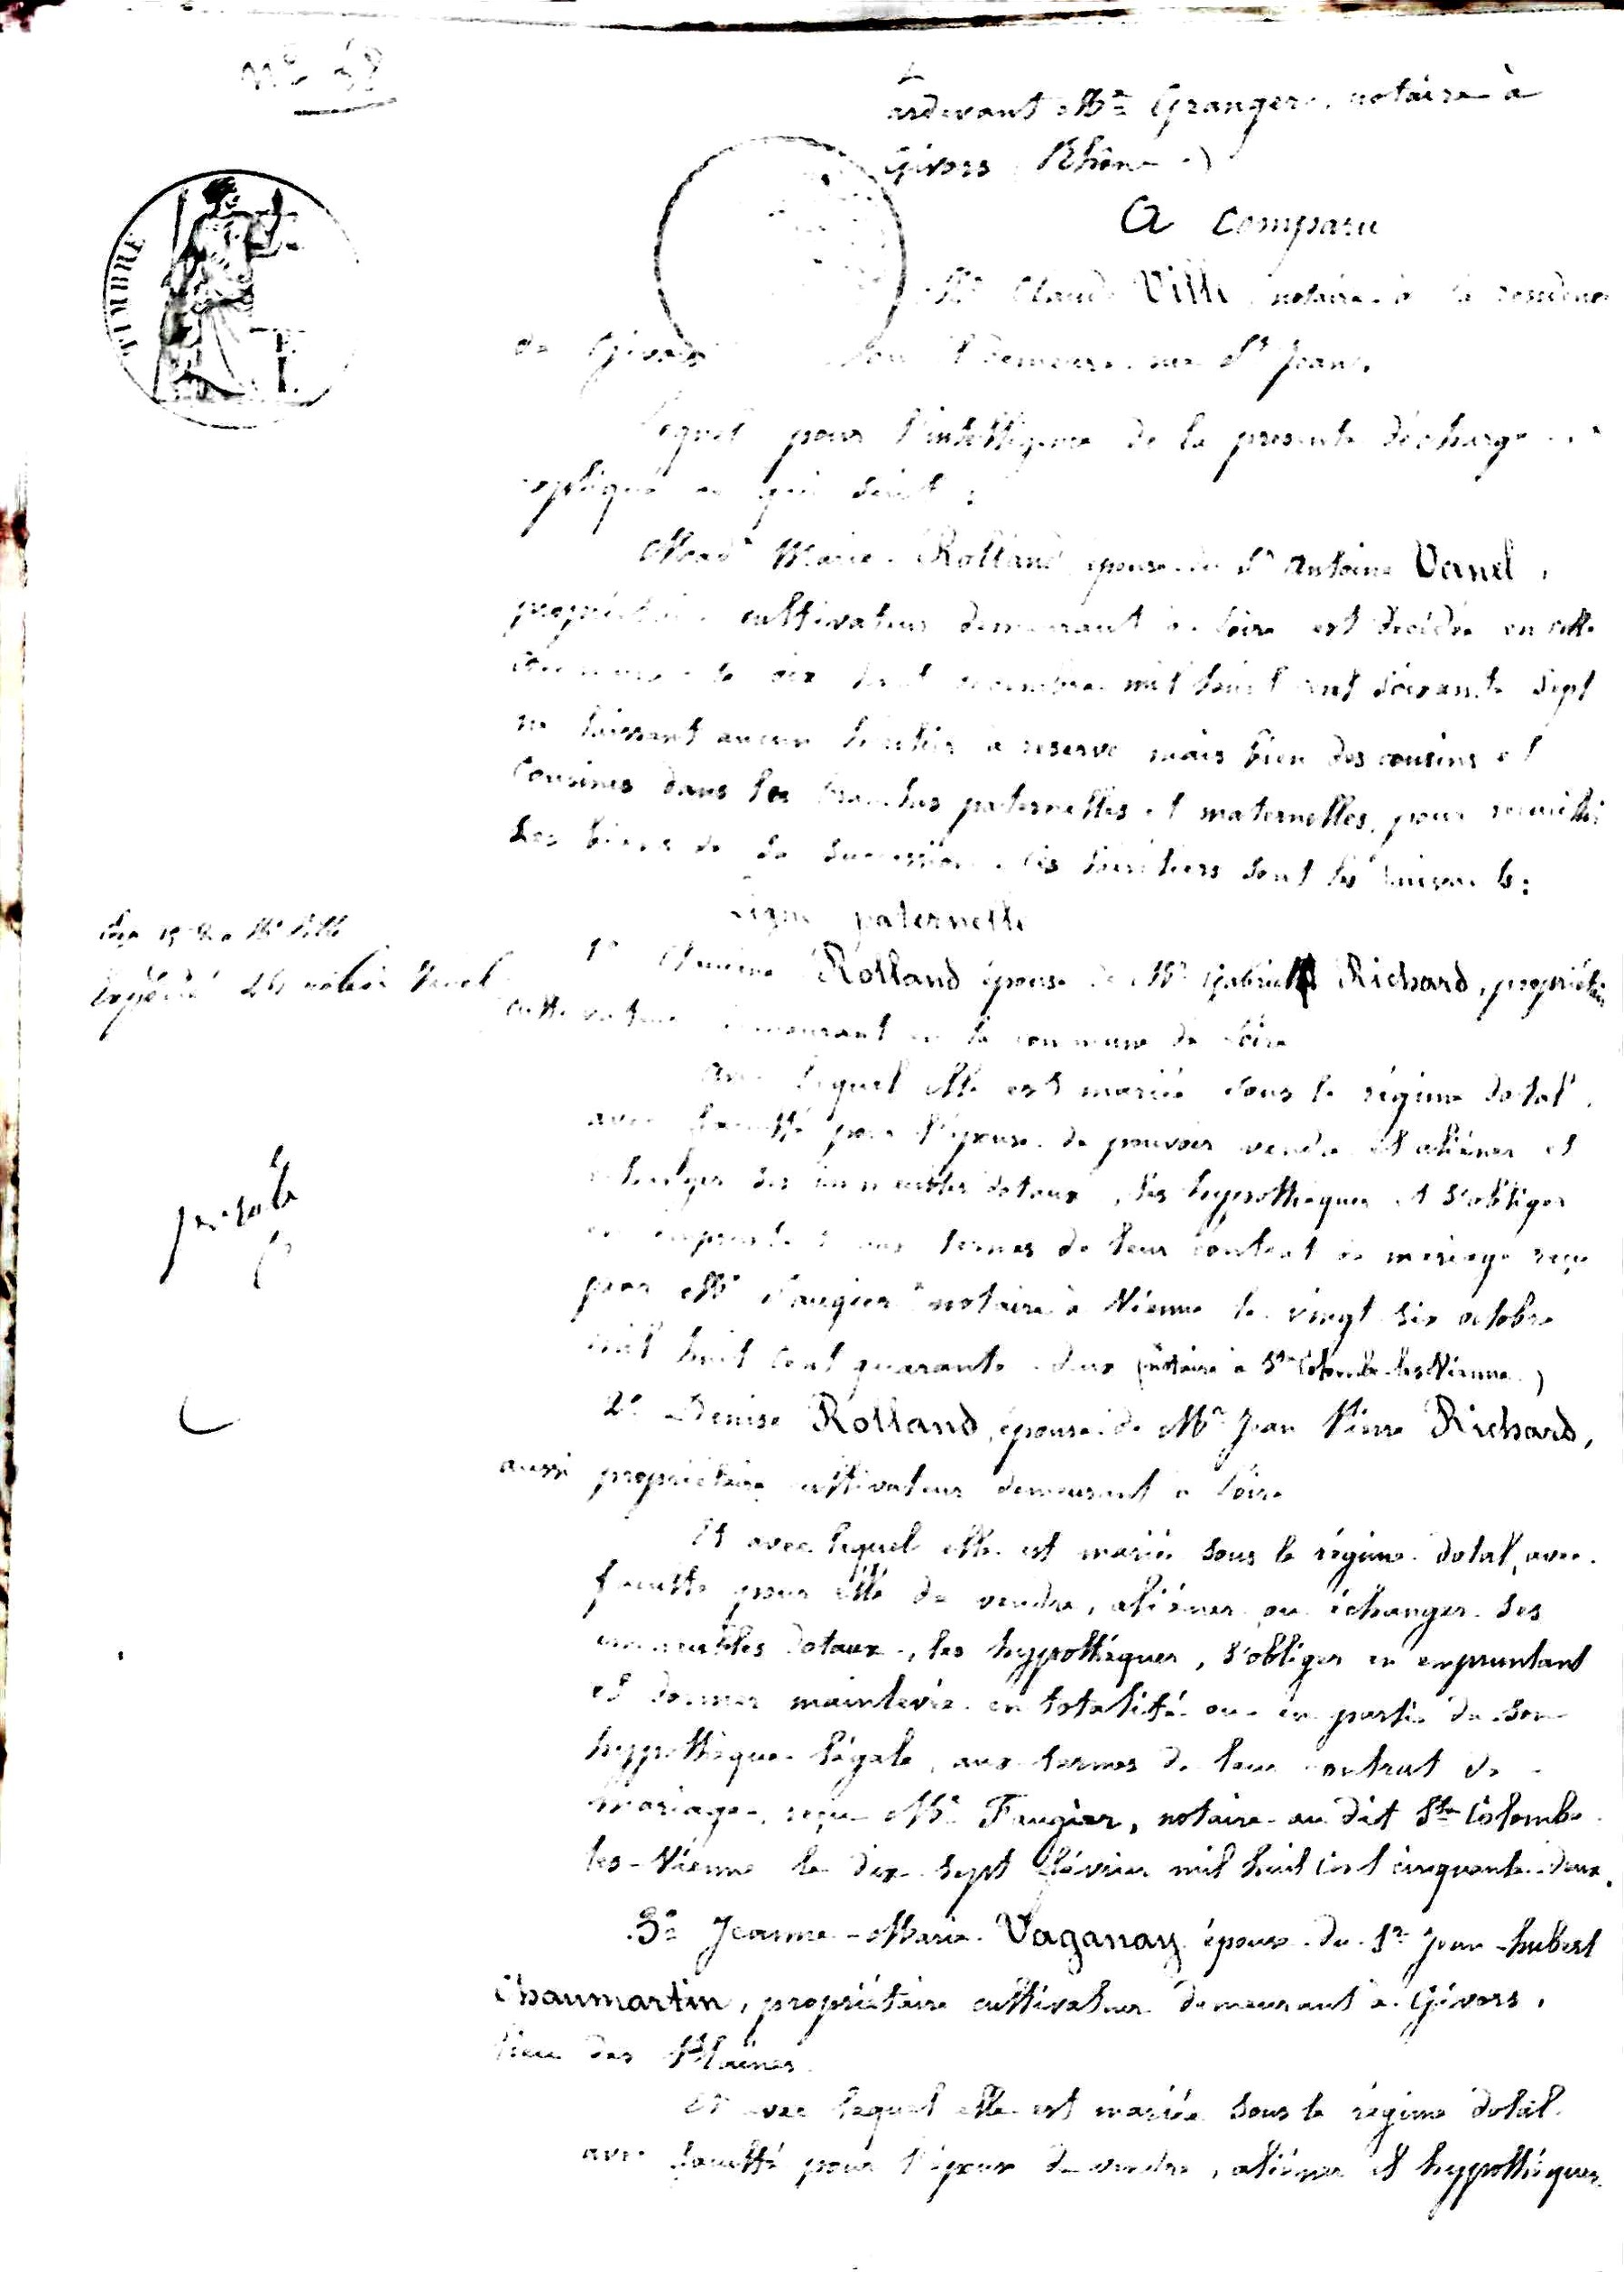 N° 38
TIMBRE
Pardevant Me Granger, notaire à
Givors (Rhône)
A comparu
Me Claude Ville notaire à la residence
de Givors demeure rue St Jean.
Lequel pour l'intelligence de la presente décharge a
expliqué ce qui suit :
Made Marie Rolland épouse de Sr Antoine Vanel,
propriétaire cultivateur demeurant à Loire est décédée en cette
commune le dix huit mil huit cent soixante sept
ne laissant aucun héritier à reserve mais bien des cousins et
Cousines dans les branches paternelles et maternelles, pour recueillir
les biens de sa succession. Ces héritiers sont les suivants :
Ligne paternelle
1° Rolland épouse de Mr Gabriel Richard, propriétaire
cultivateur demeurant en la commune de Loire
Avec lequel elle est mariée sous le régime dotal
avec faculté pour l'épouse de pouvoir vendre et aliéner et
échanger ses immeubles dotaux, les hypothéquer et s'obliger
aux termes de leur contrat de mariage reçu
par Me Faugier notaire à Vienne le vingt six octobre
mil huit cent quarante deux (notaire à Ste Colombe-les-Vienne)
2° Denise Rolland, épouse de Mr Jean Pierre Richard,
aussi propriétaire cultivateur demeurant à Loire
Et avec lequel elle est mariée sous le régime dotal, avec
faculté pour elle de vendre, aliéner ou échanger ses
immeubles dotaux, les hypothéquer, s'obliger en empruntant
et donner mainlevée en totalité ou en partie de son
hypothèque légale, aux termes de leur contrat de
mariage, reçu Me Faugier, notaire au dit Ste Colombe
les-Vienne le dix sept février mil huit cent cinquante deux.
3° Jeanne-Marie Vaganay épouse du Sr Jean-hubert
Chaumartin, propriétaire cultivateur demeurant à Givors,
lieu des Plaines
Et avec lequel elle est mariée sous le régime dotal
avec faculté pour l'épouse de vendre, aliéner et hypothéquer